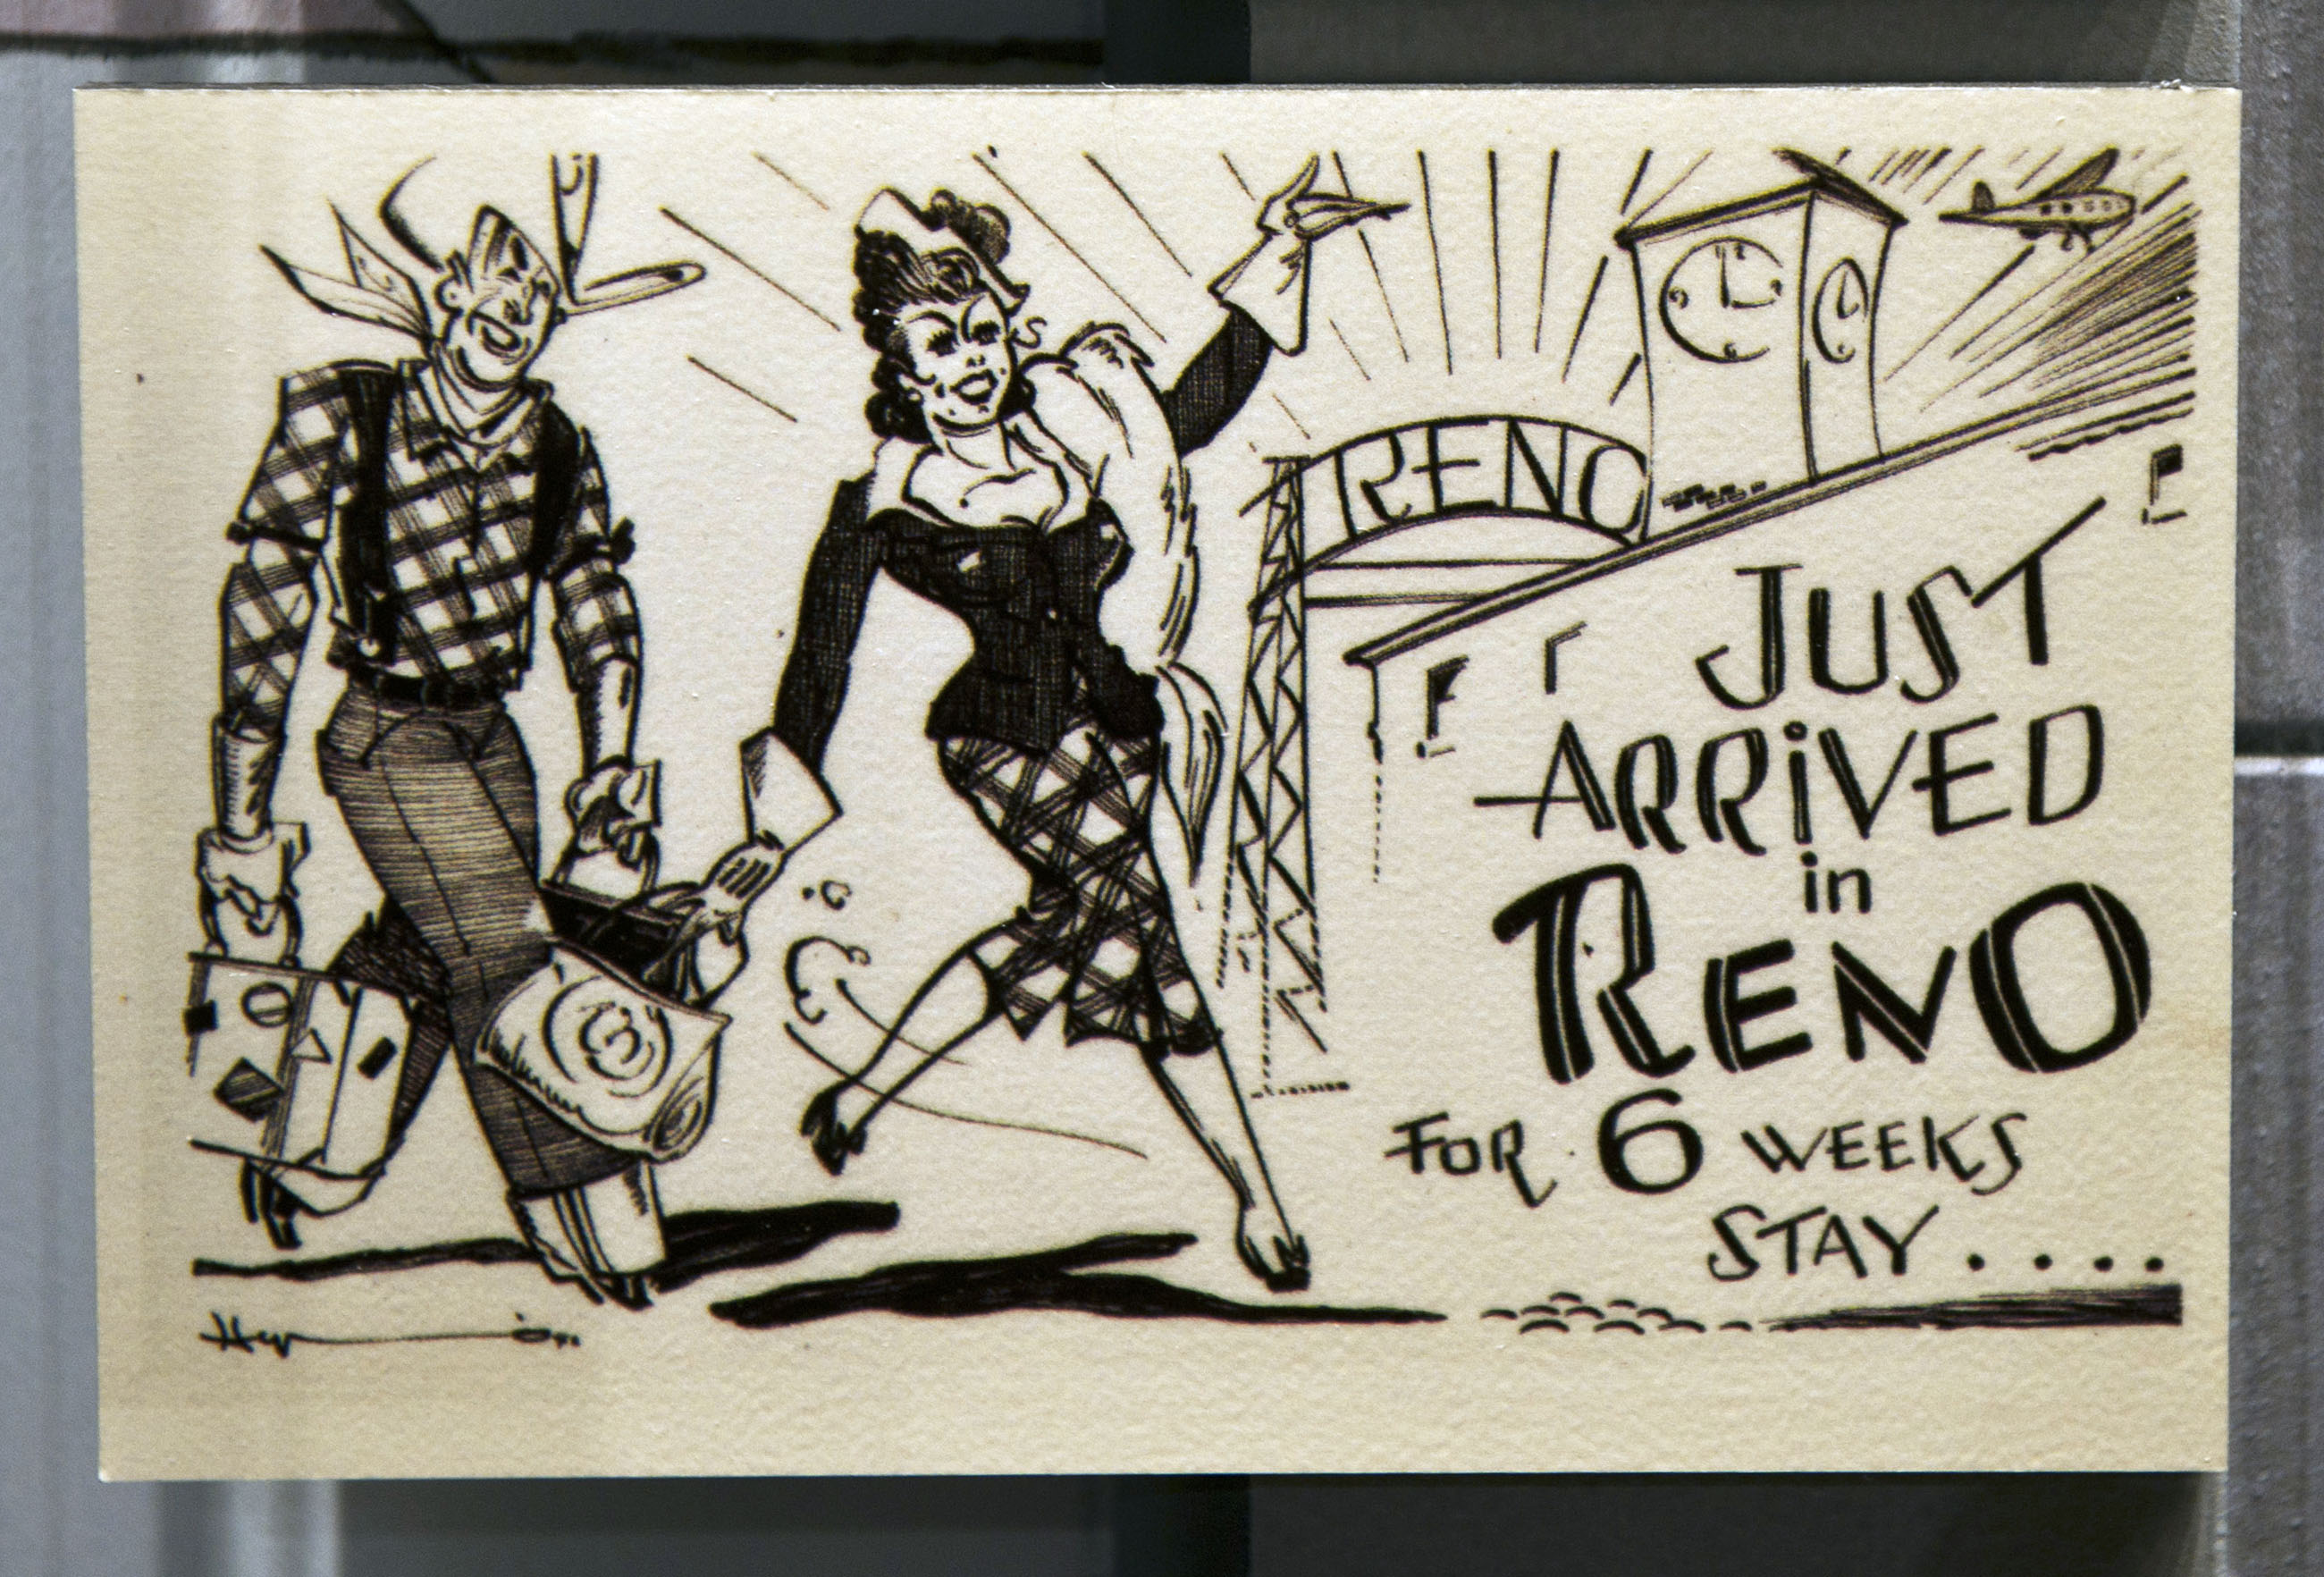 RENO
JUST
ARRiVED
in
RENO
FOR 6 WEEKS
STAY....